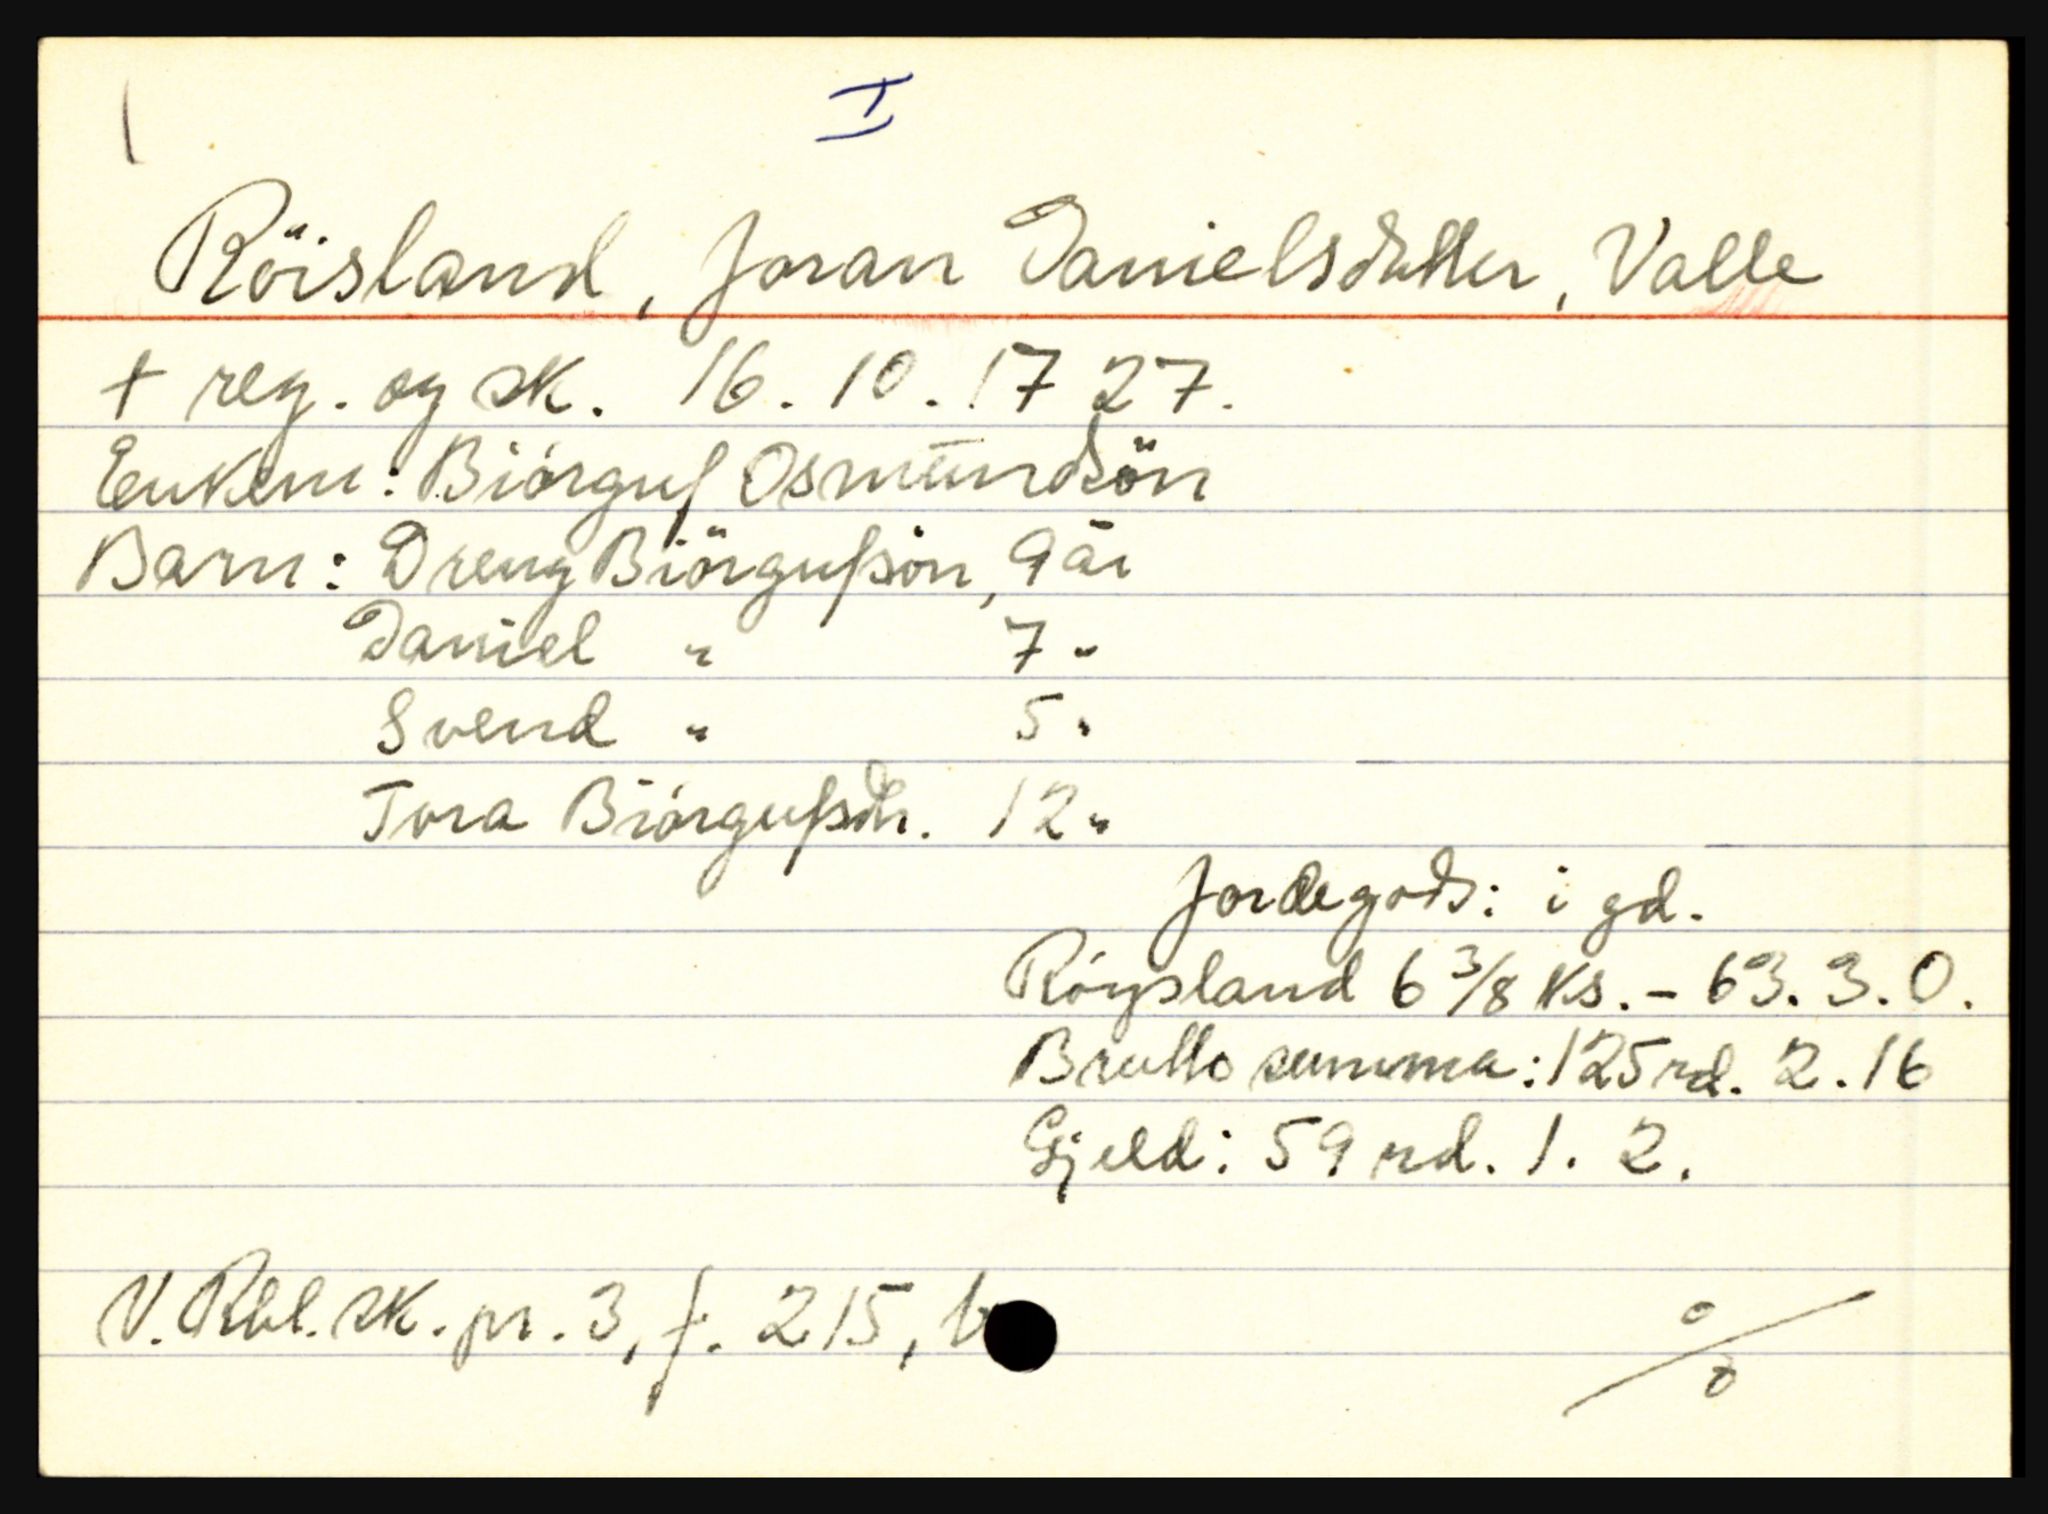 I
Röisland, Joran Danielsdatter, Valle
+ reg. og sk. 16. 10. 1727.
Enkem: Biörguf Osmundsön
Barn: Dreng Biörgufsön, 9 år
Daniel " 7 "
Svend " 5 "
Tora Biörgufsdtr. 12 "
Jordegods: i gd.
Röysland 6 3/8 Ks. - 63. 3. 0.
Brutto summa: 125 rd. 2. 16
Gjeld: 59 rd. 1. 2.
V. Rbl. sk. pr. 3, f. 215, b
%